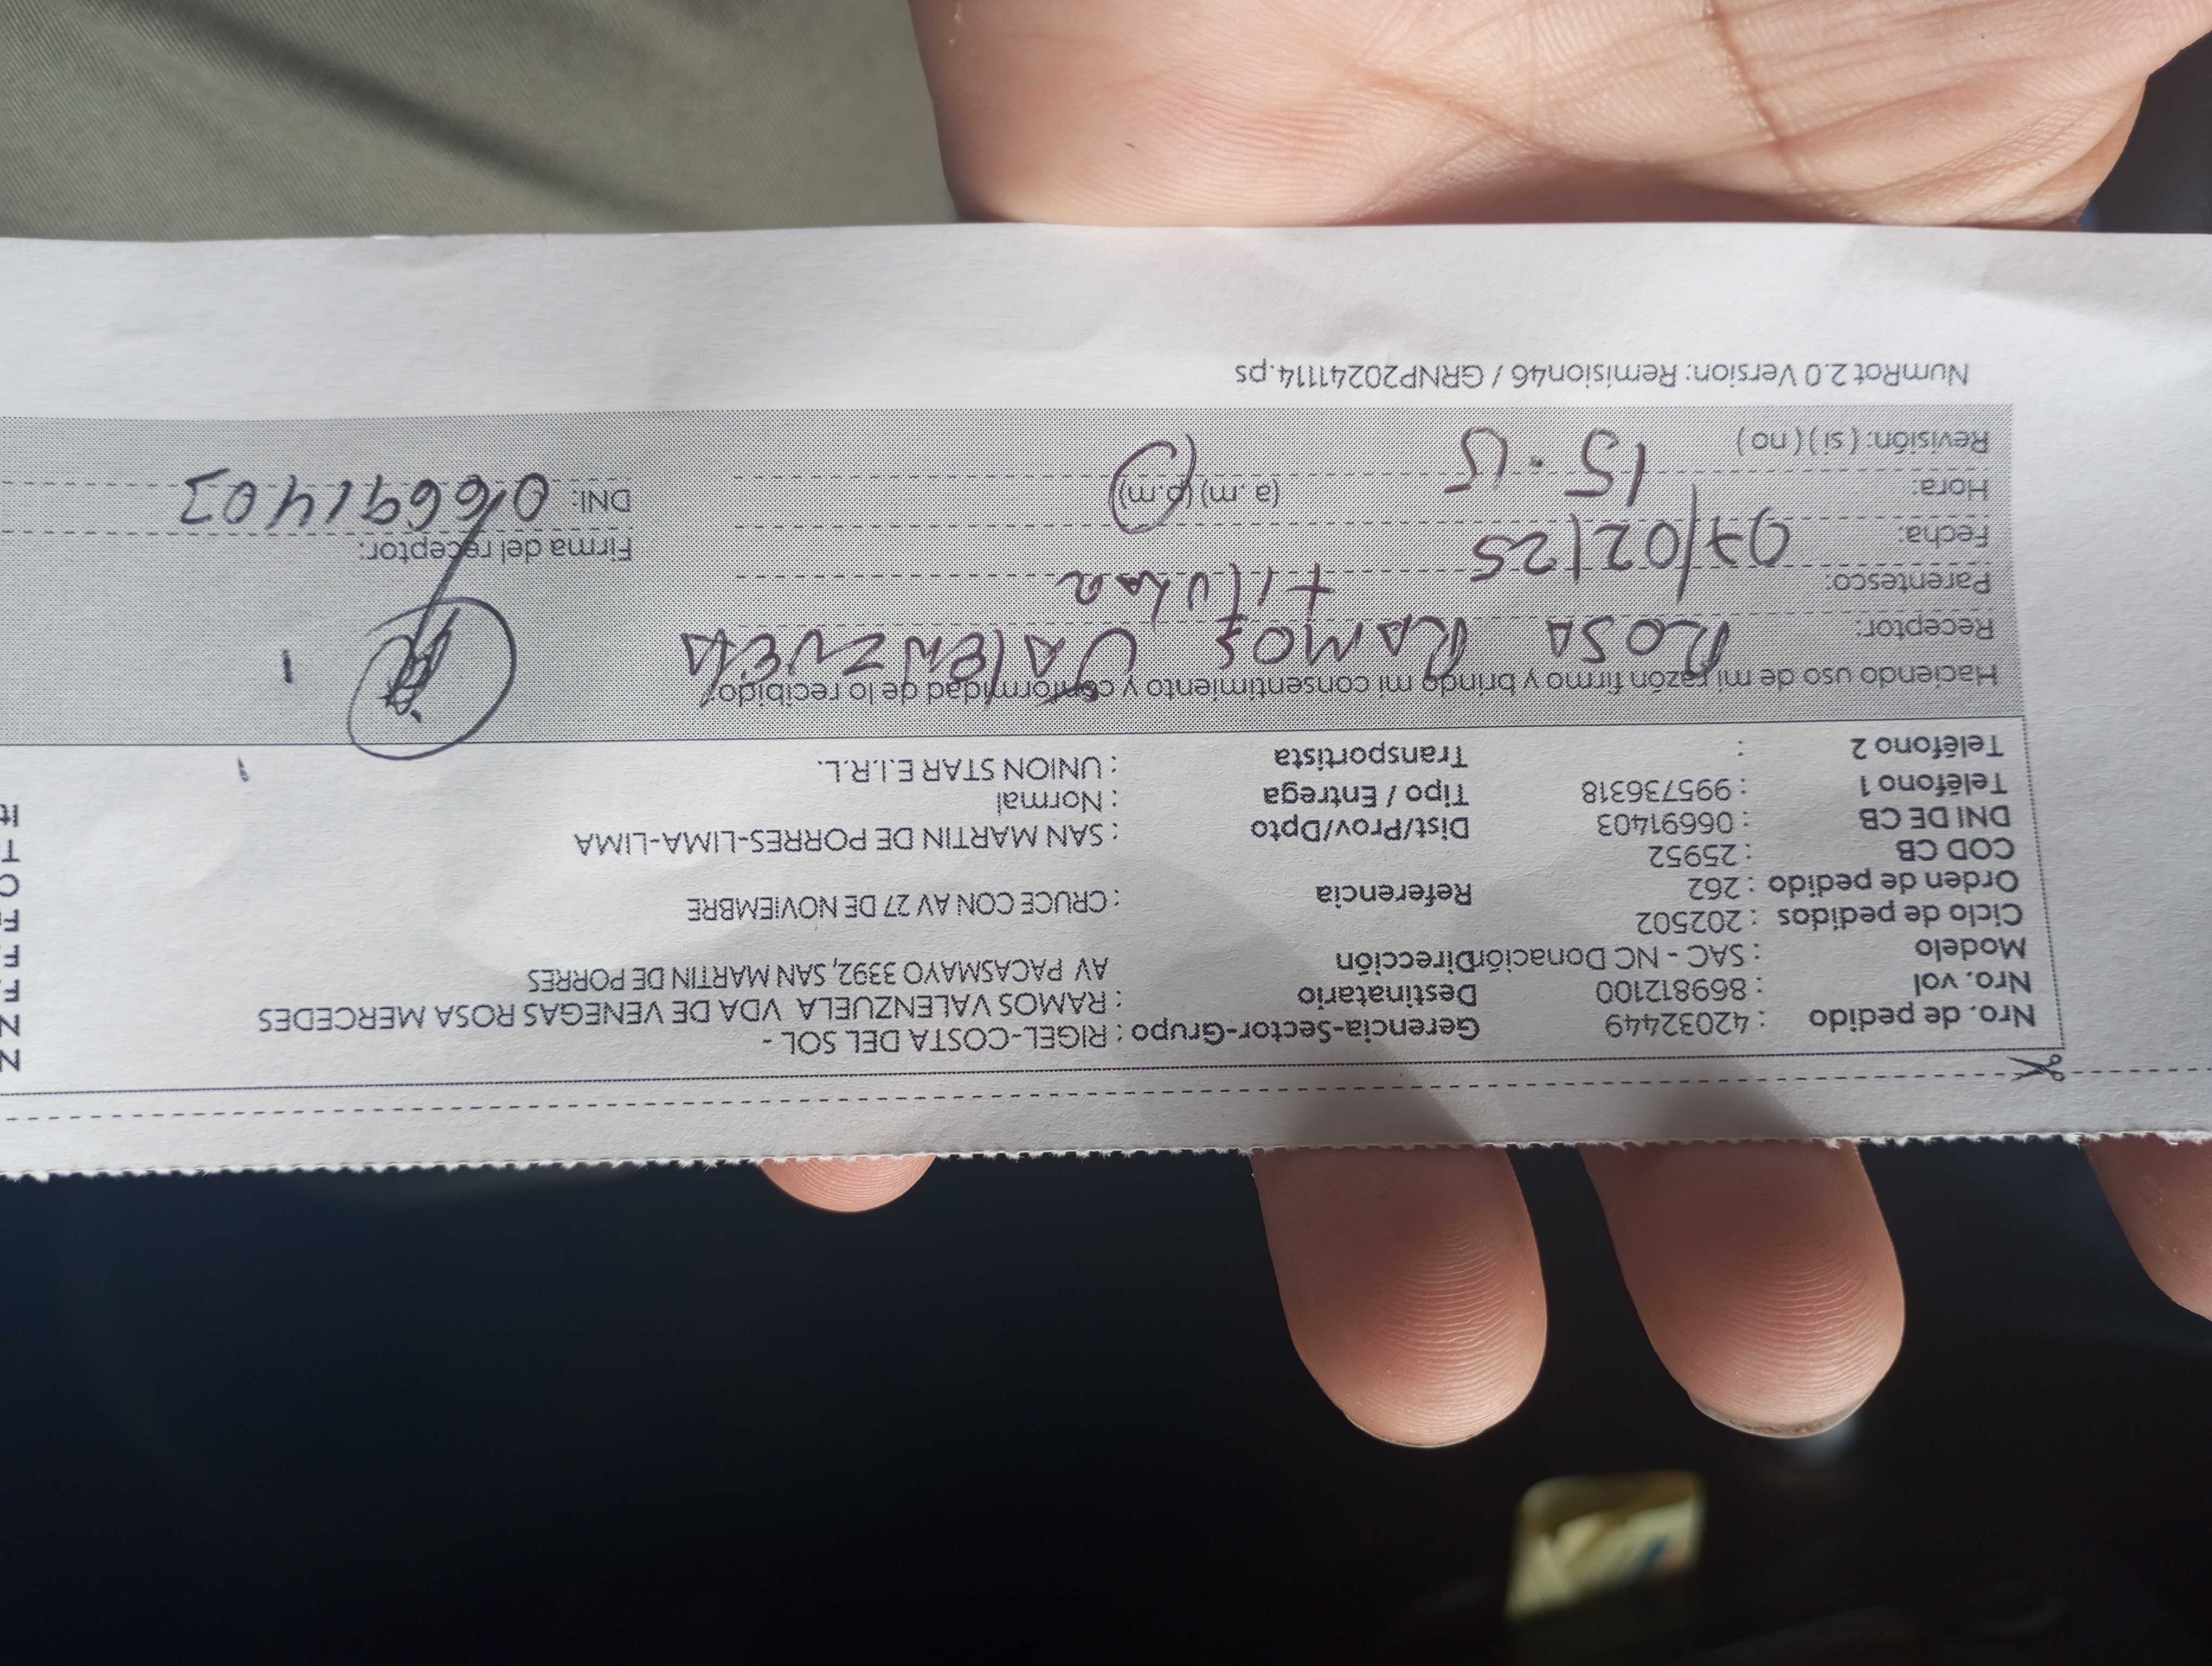 Nro. de pedido : 42032449 Gerencia-Sector-Grupo : RIGEL-COSTA DEL SOL -
Nro. vol : 869812100 Destinatario : RAMOS VALENZUELA VDA DE VENEGAS ROSA MERCEDES
Modelo : SAC - NC Donación Dirección AV PACASMAYO 3392, SAN MARTIN DE PORRES
Ciclo de pedidos : 202502
Orden de pedido : 262 Referencia : CRUCE CON AV 27 DE NOVIEMBRE
COD CB : 25952
DNI DE CB : 06691403 Dist/Prov/Dpto : SAN MARTIN DE PORRES-LIMA-LIMA
Teléfono 1 : 995736318 Tipo / Entrega : Normal
Teléfono 2 : Transportista : UNION STAR E.I.R.L.
Haciendo uso de mi razón firmo y brindo mi consentimiento y conformidad de lo recibido:
Receptor: ROSA RAMOS VALENZUELA
Parentesco: titular
Fecha: 07/02/25 Firma del receptor:
Hora: 15:15 (a.m) (p.m) DNI: 06691403
Revisión: ( si ) ( no )
NumRot 2.0 Version: Remision46 / GRNP20241114.ps